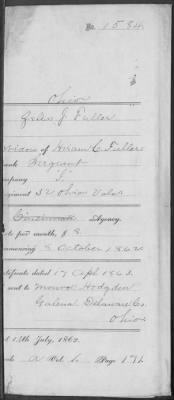 No. 1584
Ohio
Zelia J Fuller
Widow of Hiram C. Fuller
ank Sergeant
mpany "I"
egiment 32 Ohio Vols
Cincinnati Agency.
te per month, $ 8
mmencing 8 October 1862
rtificate dated 17 Apl 1863.
sent to Monroe Hodgden
Galena Delaware Co.
Ohio
t 14th July, 1862.
Page 174